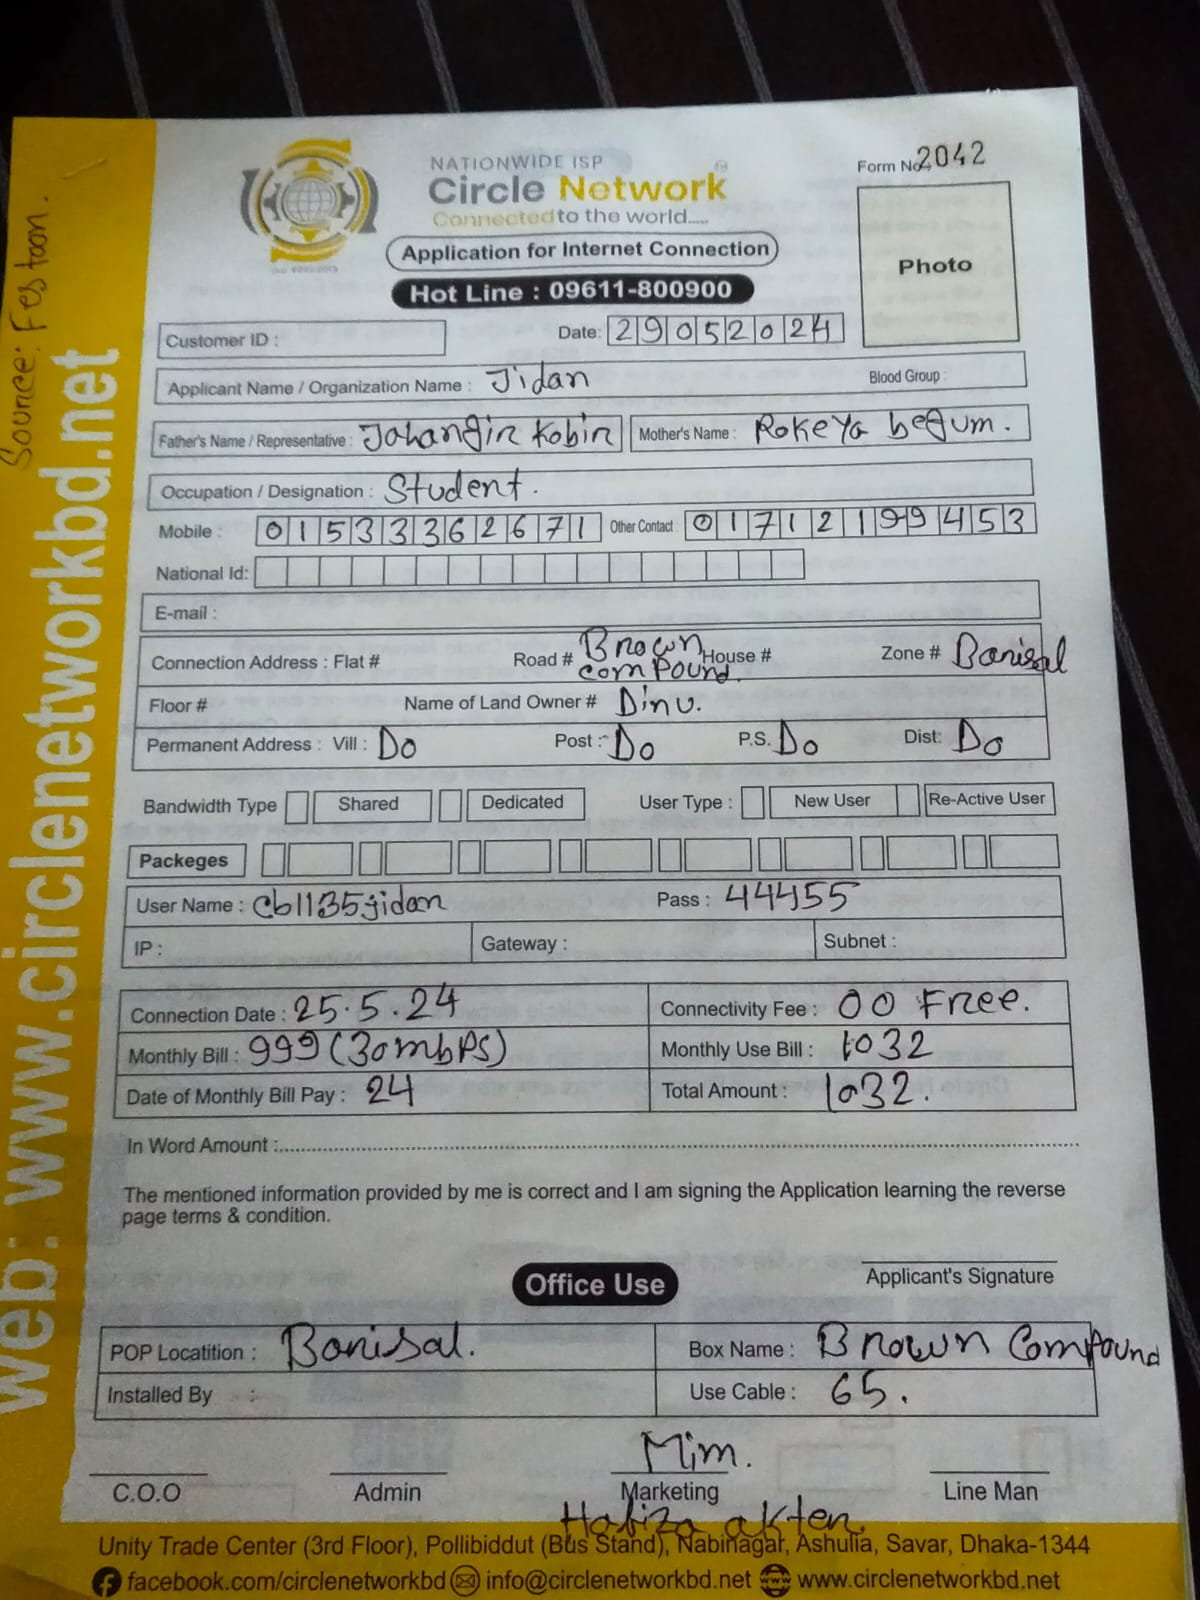 Source: Festoon.
web: www.circlenetworkbd.net
NATIONWIDE ISP
Circle Network
Connected to the world.....
Form No. 2042
Application for Internet Connection
Hot Line : 09611-800900
Photo
Customer ID :
Date: 29052024
Applicant Name / Organization Name : Jidan Blood Group :
Father's Name / Representative : Jahangir Kobir Mother's Name : Rokeya begum.
Occupation / Designation : Student.
Mobile : 01533362671 Other Contact : 01712199453
National Id:
E-mail :
Connection Address : Flat # Road # Brown compound. House # Zone # Barisal
Floor # Name of Land Owner # Dinu.
Permanent Address : Vill : Do Post : Do P.S. Do Dist: Do
Bandwidth Type Shared Dedicated User Type : New User Re-Active User
Packeges
User Name : cb1135jidan Pass : 44455
IP : Gateway : Subnet :
Connection Date : 25.5.24 Connectivity Fee : 00 Free.
Monthly Bill : 999 (30mbps) Monthly Use Bill : 1032
Date of Monthly Bill Pay : 24 Total Amount : 1032.
In Word Amount :
The mentioned information provided by me is correct and I am signing the Application learning the reverse
page terms & condition.
Applicant's Signature
Office Use
POP Locatition : Barisal. Box Name : Brown Compound
Installed By : Use Cable : 65.
Mim.
C.O.O Admin Marketing Line Man
Habiza akter.
Unity Trade Center (3rd Floor), Pollibiddut (Bus Stand), Nabinagar, Ashulia, Savar, Dhaka-1344
facebook.com/circlenetworkbd info@circlenetworkbd.net www.circlenetworkbd.net